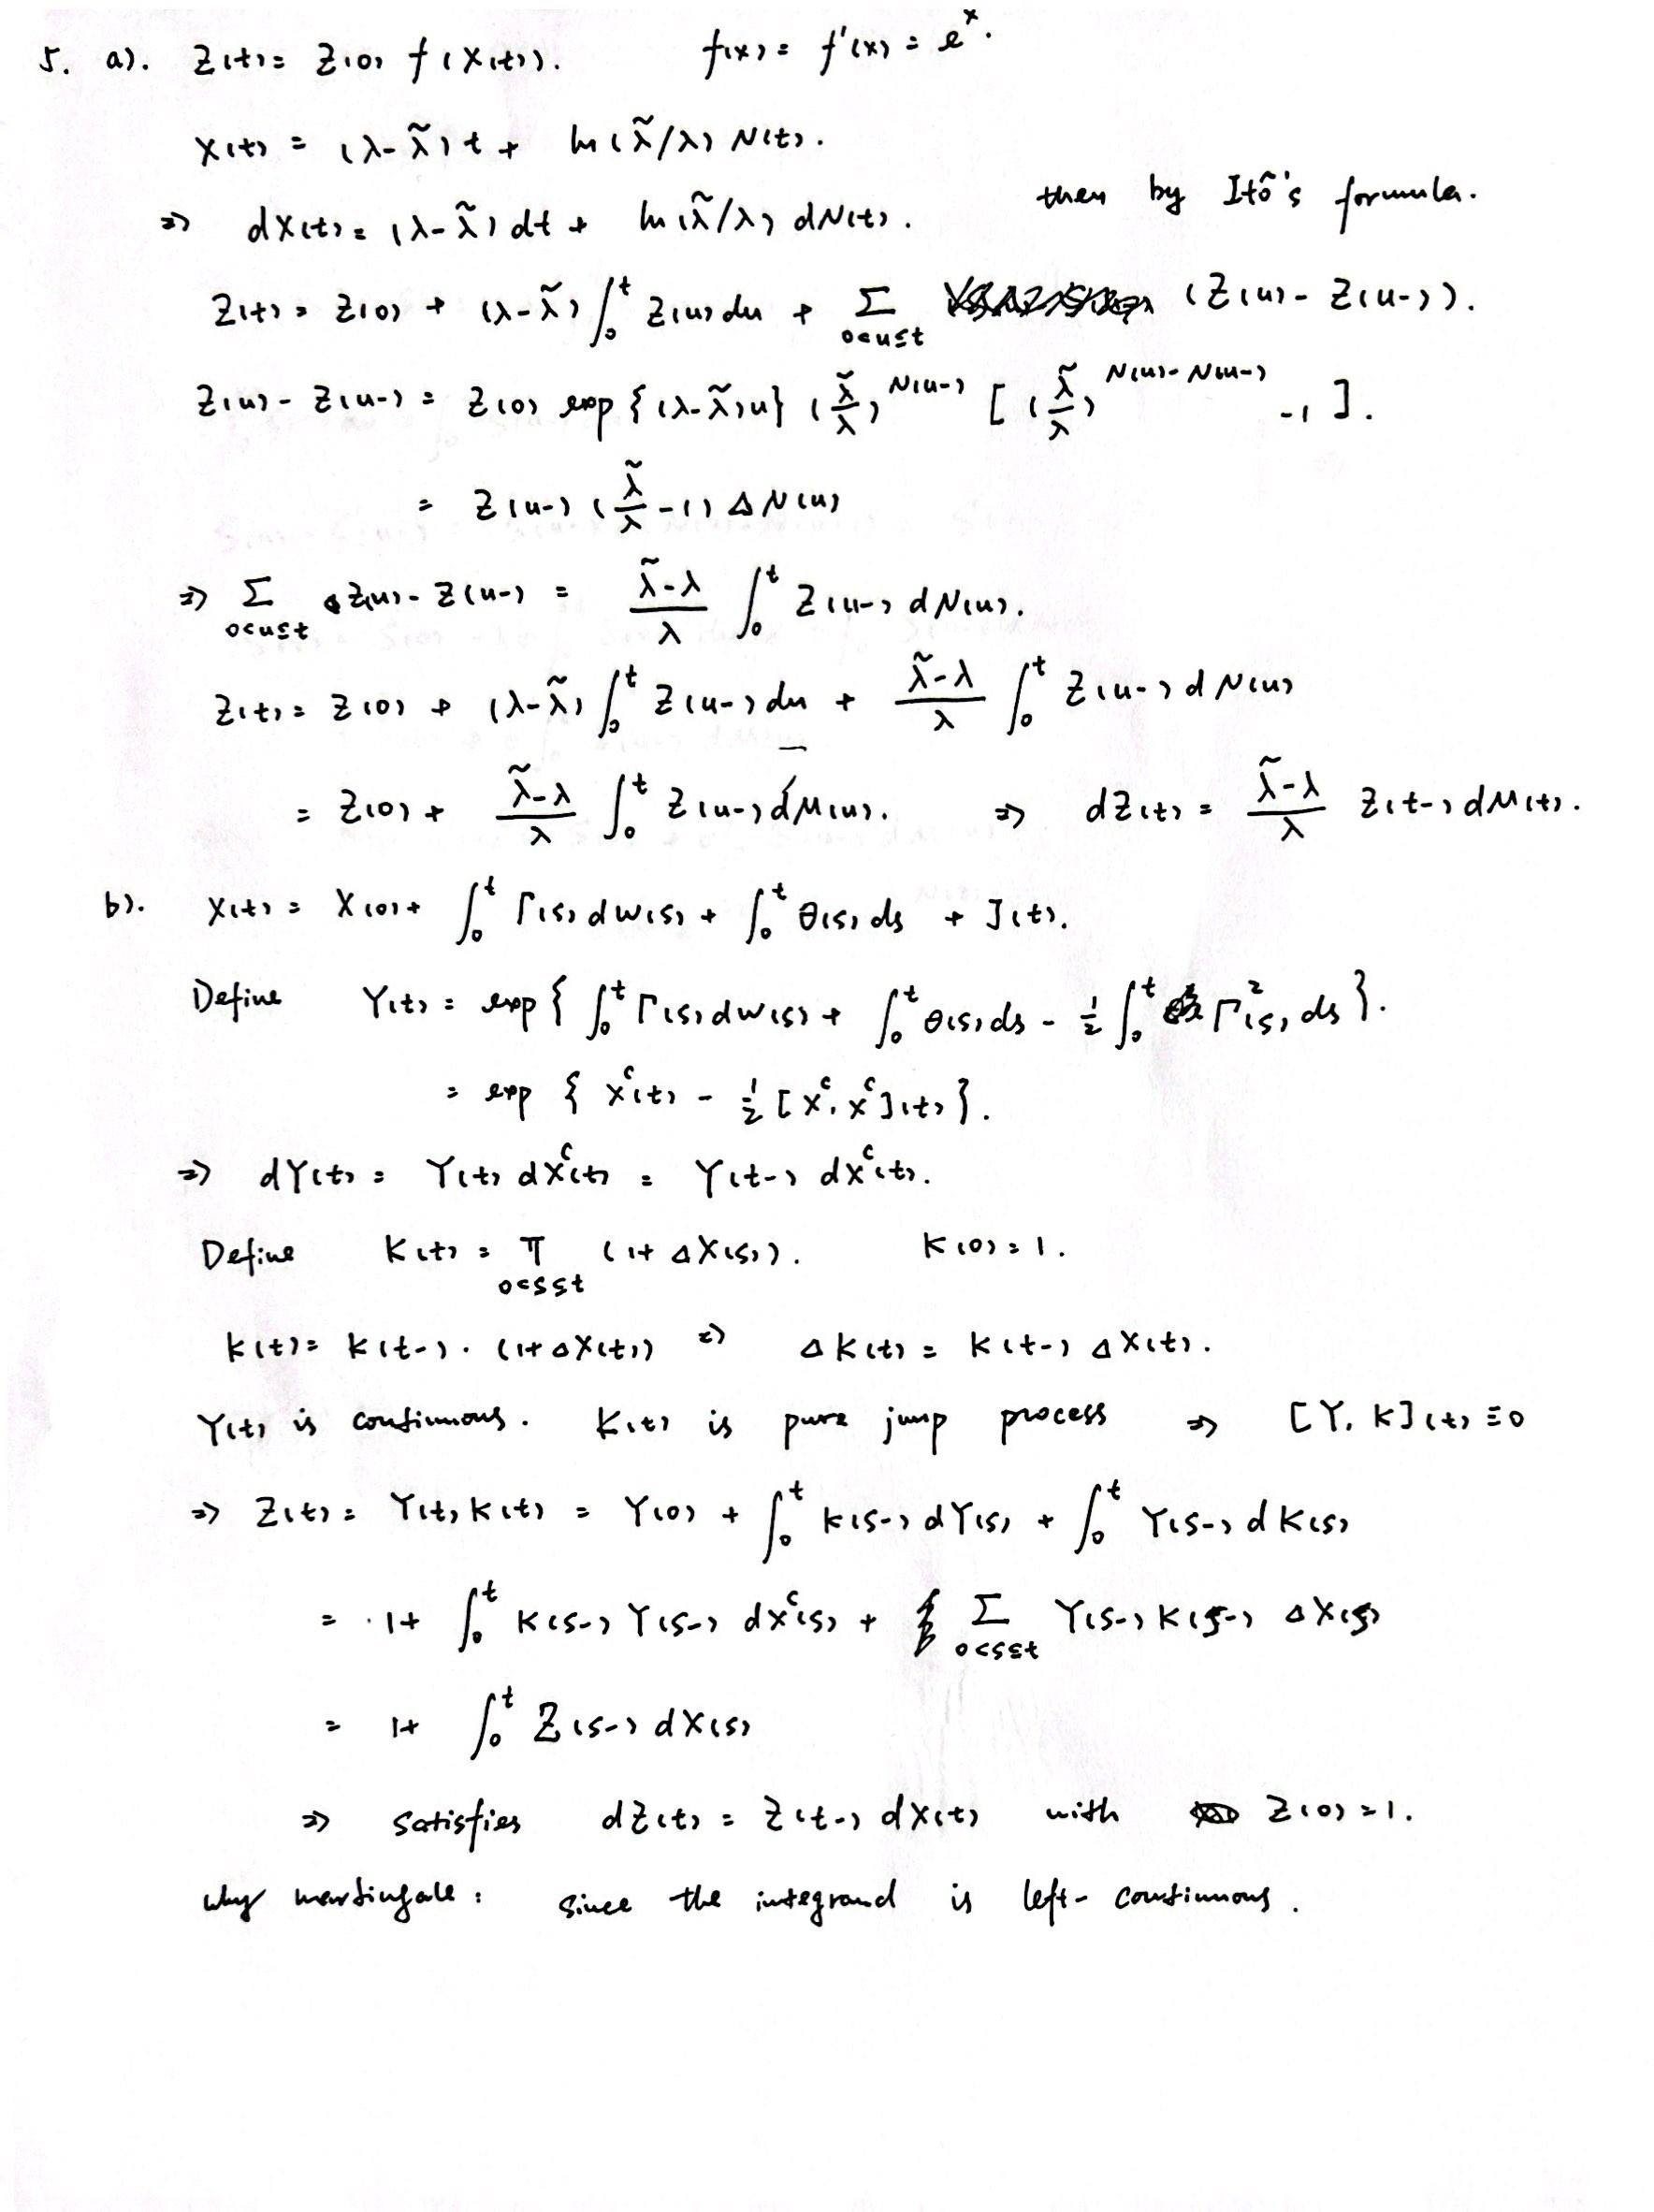 5. a). Z(t) = Z(0) f(X(t)). f(x) = f'(x) = e^x.
X(t) = (λ-λ̃)t + ln(λ̃/λ) N(t).
⇒ dX(t) = (λ-λ̃) dt + ln(λ̃/λ) dN(t). then by Itô's formula.
Z(t) = Z(0) + (λ-λ̃) ∫_0^t Z(u) du + Σ_{0<u≤t} (Z(u) - Z(u-)).
Z(u) - Z(u-) = Z(0) exp{(λ-λ̃)u} (λ̃/λ)^{N(u-)} [(λ̃/λ)^{N(u)-N(u-)} -1].
= Z(u-) (λ̃/λ -1) ΔN(u)
⇒ Σ_{0<u≤t} Z(u) - Z(u-) = (λ̃-λ)/λ ∫_0^t Z(u-) dN(u).
Z(t) = Z(0) + (λ-λ̃) ∫_0^t Z(u-) du + (λ̃-λ)/λ ∫_0^t Z(u-) dN(u)
= Z(0) + (λ̃-λ)/λ ∫_0^t Z(u-) dM(u). ⇒ dZ(t) = (λ̃-λ)/λ Z(t-) dM(t).
b). X(t) = X(0) + ∫_0^t Γ(s) dW(s) + ∫_0^t θ(s) ds + J(t).
Define Y(t) = exp{ ∫_0^t Γ(s) dW(s) + ∫_0^t θ(s) ds - 1/2 ∫_0^t Γ²(s) ds }.
= exp { X^c(t) - 1/2 [X^c, X^c](t) }.
⇒ dY(t) = Y(t) dX^c(t) = Y(t-) dX^c(t).
Define K(t) = Π_{0<s≤t} (1+ ΔX(s)). K(0) = 1.
K(t) = K(t-) · (1+ ΔX(t)) ⇒ ΔK(t) = K(t-) ΔX(t).
Y(t) is continuous. K(t) is pure jump process ⇒ [Y, K](t) ≡ 0
⇒ Z(t) = Y(t) K(t) = Y(0) + ∫_0^t K(s-) dY(s) + ∫_0^t Y(s-) dK(s)
= 1+ ∫_0^t K(s-) Y(s-) dX^c(s) + Σ_{0<s≤t} Y(s-) K(s-) ΔX(s)
= 1+ ∫_0^t Z(s-) dX(s)
⇒ satisfies dZ(t) = Z(t-) dX(t) with Z(0) = 1.
why martingale: since the integrand is left-continuous.